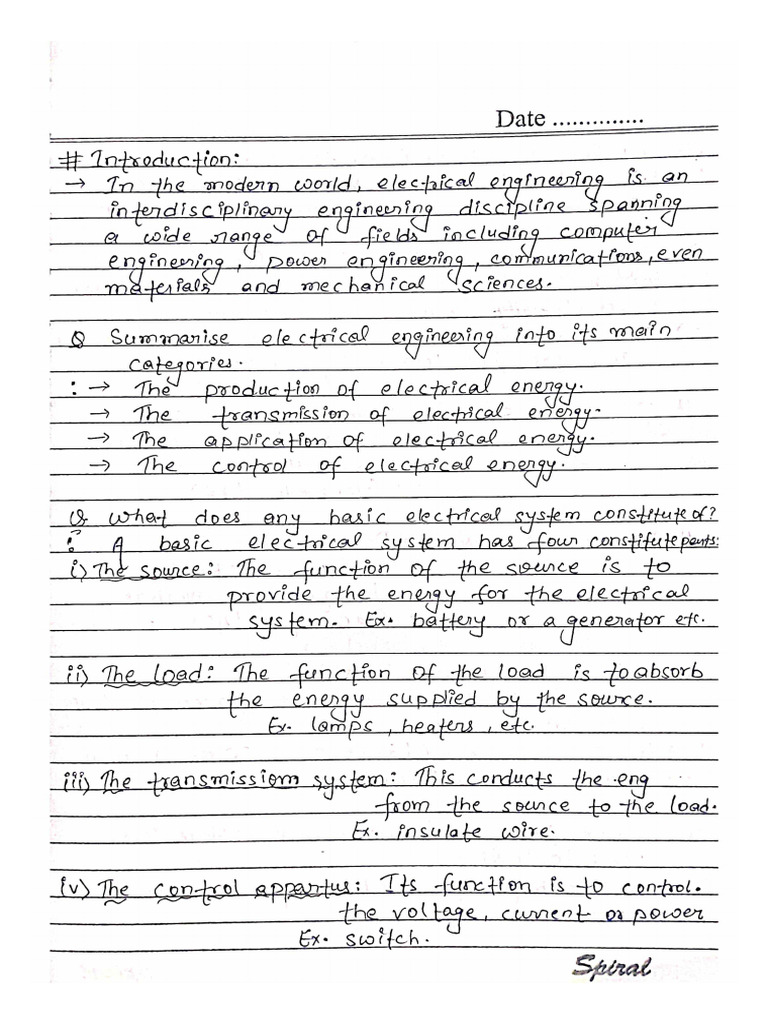 Date ..............
# Introduction:
→ In the modern world, electrical engineering is an
interdisciplinary engineering discipline spanning
a wide range of fields including computer
engineering, power engineering, communications, even
materials and mechanical sciences.
Q Summarise electrical engineering into its main
categories.
: → The production of electrical energy.
→ The transmission of electrical energy.
→ The application of electrical energy.
→ The control of electrical energy.
Q What does any basic electrical system constitute of?
: A basic electrical system has four constitute parts:
i) The source: The function of the source is to
provide the energy for the electrical
system. Ex. battery or a generator etc.
ii) The load: The function of the load is to absorb
the energy supplied by the source.
Ex. lamps, heaters, etc.
iii) The transmissiom system: This conducts the eng
from the source to the load.
Ex. insulate wire.
iv) The control appartus: Its function is to control.
the voltage, current or power
Ex. switch.
Spiral